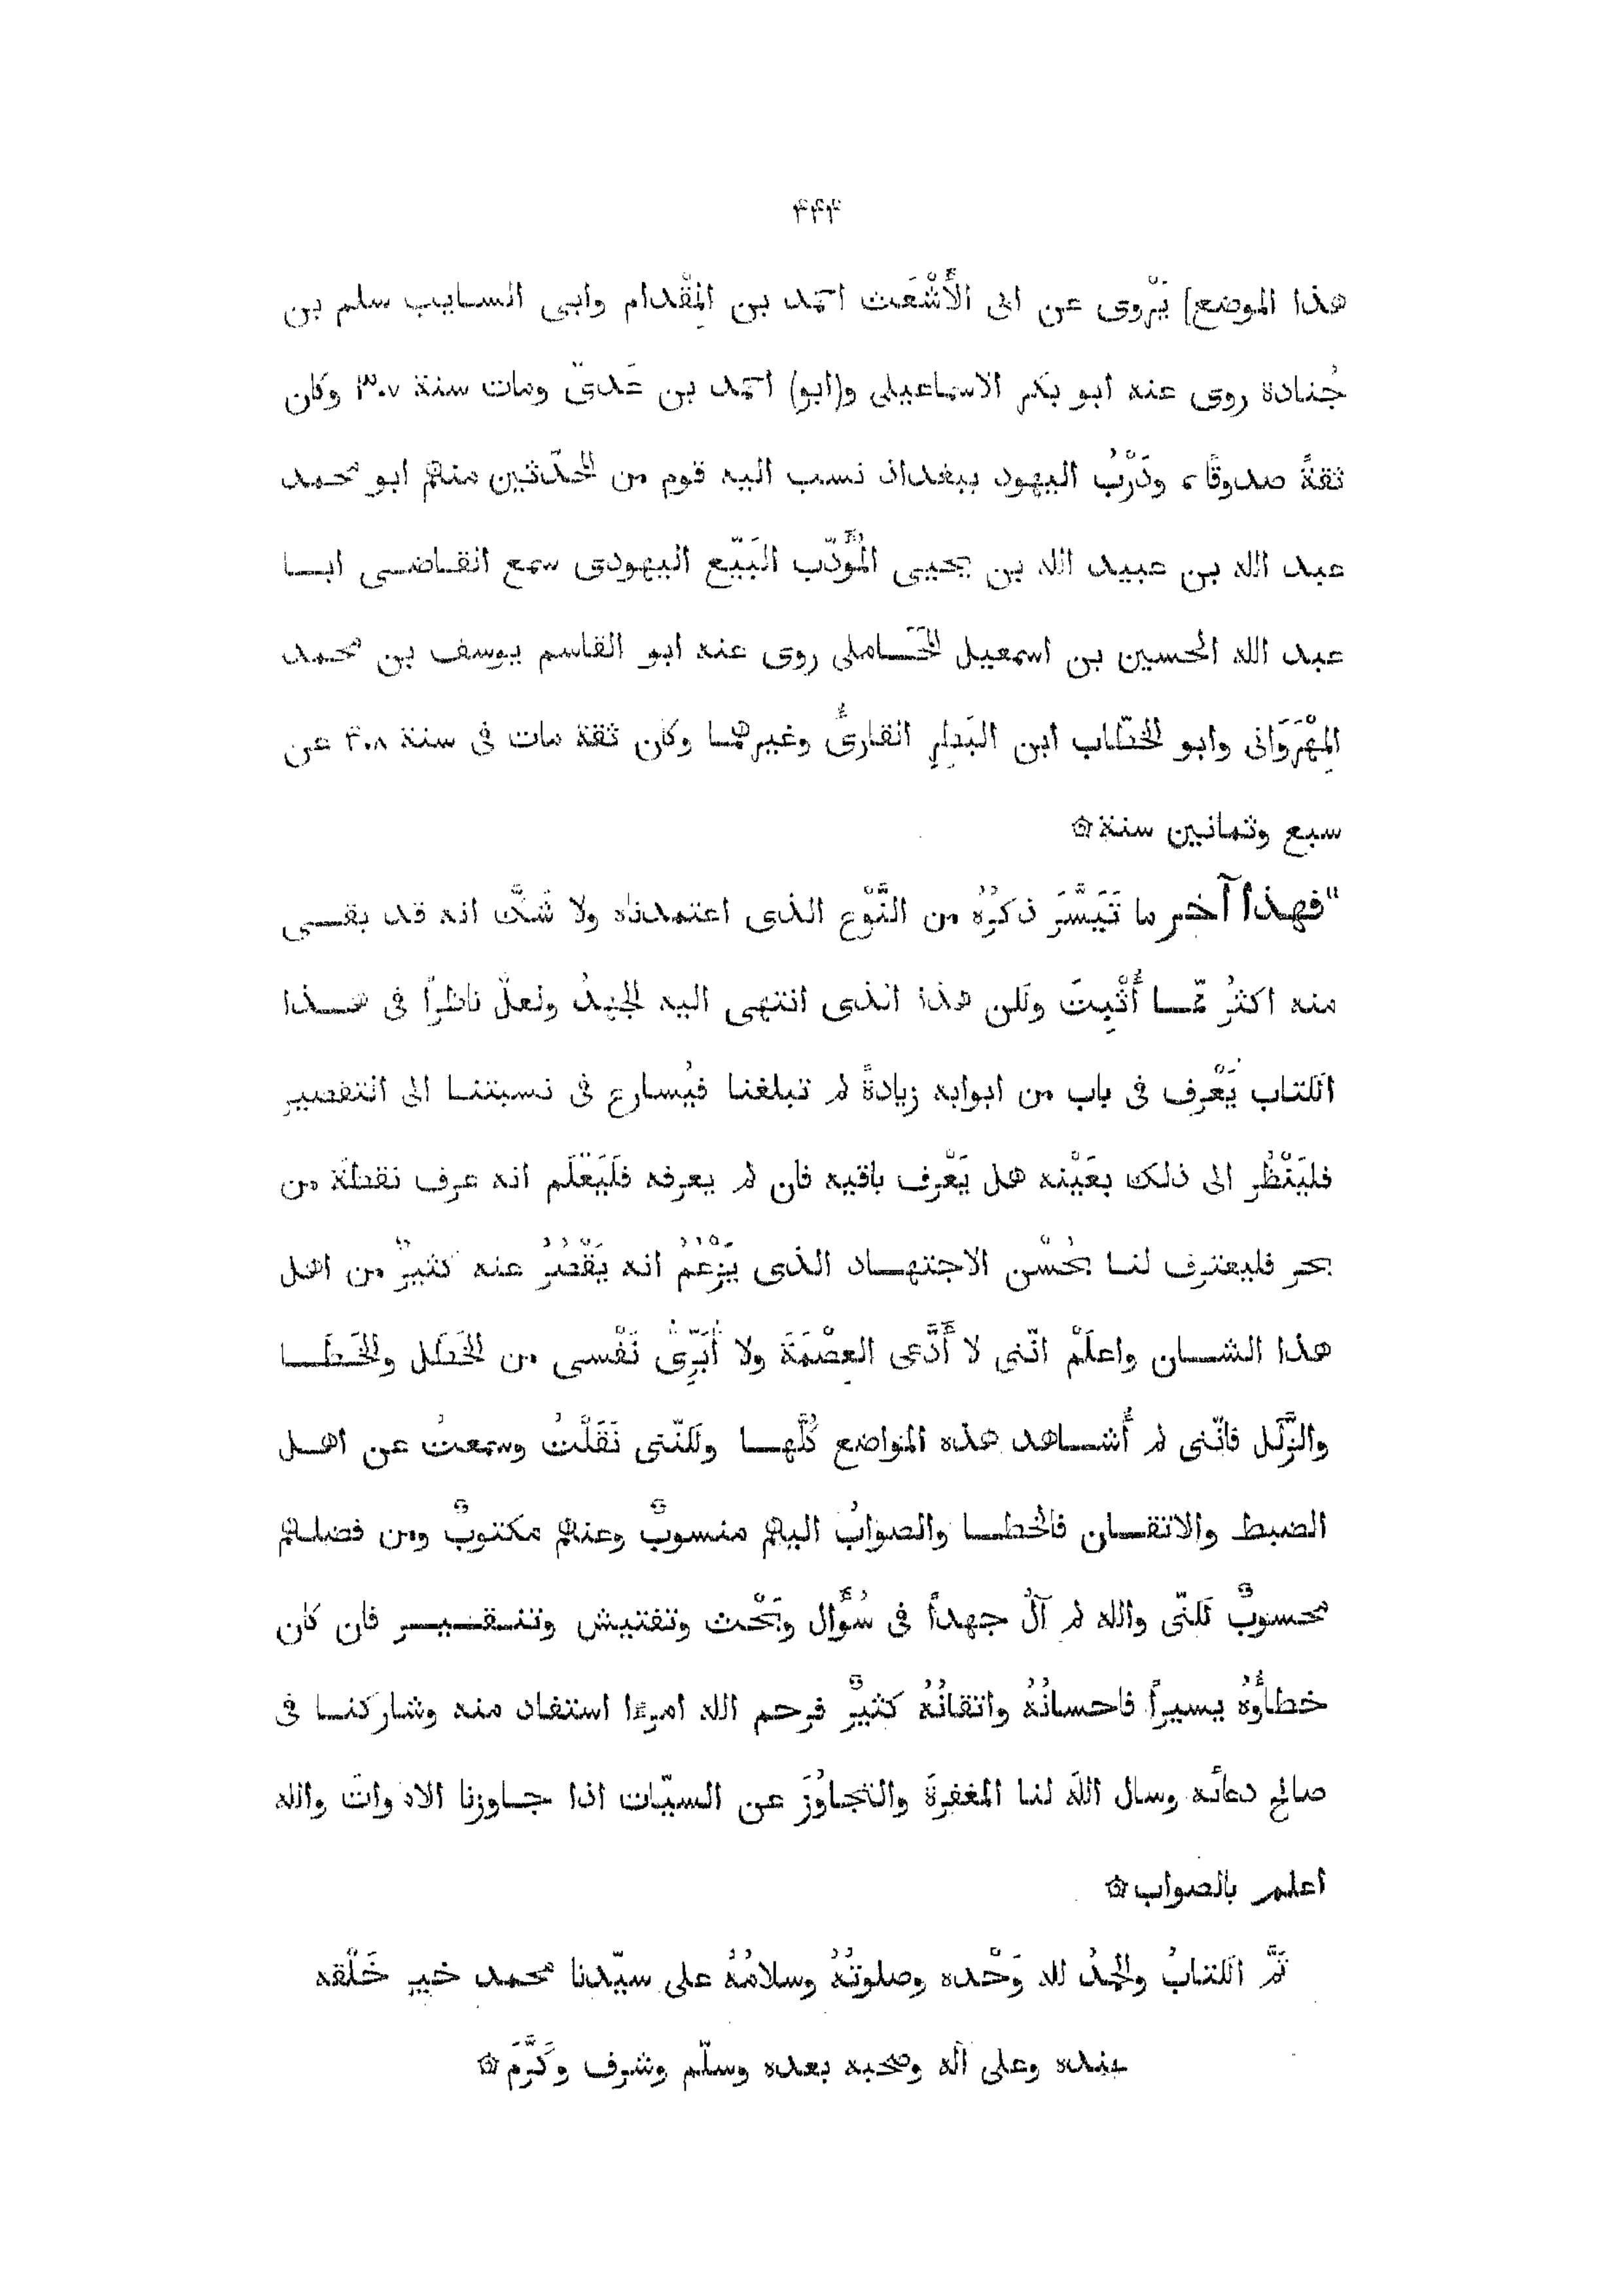 ۴۴۴
هذا الموضع] يَرْوى عن ابى الأَشْعَث احمد بن المِقْدام وابى السايب سلم بن
جُنادة روى عنه ابو بكر الاسماعيلى و(ابو) احمد بن عَدىّ ومات سنة ٣٠٧ وكان
ثقةً صدوقًا، ودَرْبُ اليهود ببغداد نسب اليه قوم من المحدّثين منهم ابو محمد
عبد الله بن عبيد الله بن يحيى المُؤَدّب البَيّع اليهودى سمع القاضى ابا
عبد الله الحسين بن اسمعيل المَحَاملى روى عنه ابو القاسم يوسف بن محمد
المِهْرَوَانى وابو الخطّاب ابن البَطِر القارىُّ وغيرهما وكان ثقة مات فى سنة ٤٠٨ عن
سبع وثمانين سنة ۞
"فهذا آخر ما تَيَسَّرَ ذكرُهُ من النَّوْع الذى اعتمدناه ولا شَكَّ انه قد بقى
منه اكثرُ ممّا أُثْبِتَ ولكن هذا الذى انتهى اليه الجهدُ ولعلّ ناظرًا فى هذا
الكتاب يَعْرِف فى باب من ابوابه زيادةً لم تبلغنا فيُسارع فى نسبتنا الى التقصير
فليَنْظُر الى ذلك بعَيْنه هل يَعْرِف باقيه فان لم يعرفه فلَيَعْلَم انه عرف نقطة من
بحر فليعترف لنا بحُسْن الاجتهاد الذى يَزْعُمُ انه يَقْصُرُ عنه كثيرٌ من اهل
هذا الشان واعلَمْ انّنى لا أَدَّعى العِصْمَةَ ولا أُبَرِّىُ نَفْسى من الخَطَل والخَطَا
والزَّلَل فانّنى لم أُشاهد هذه المواضع كُلَّها ولكنّنى نَقَلْتُ وسمعتُ عن اهل
الضبط والاتقان فالخطا والصوابُ اليهم منسوبٌ وعنهم مكتوبٌ ومن فضلهم
محسوبٌ لكنّى والله لم آلُ جهداً فى سُؤَال وبَحْث وتفتيش وتنقير فان كان
خطاؤُهُ يسيراً فاحسانُهُ واتقانُهُ كثيرٌ فرحم الله امرءا استفاد منه وشاركنا فى
صالح دعائه وسال اللهَ لنا المغفرةَ والتجاوُزَ عن السيّات اذا جاوزنا الادوات والله
اعلم بالصواب ۞
تَمَّ الكتابُ والحمدُ لله وَحْده وصلوتُهُ وسلامُهُ على سيّدنا محمد خيرِ خَلْقه
عنده وعلى آله وصحبه بعده وسلّم وشرف وكَرَّمَ ۞